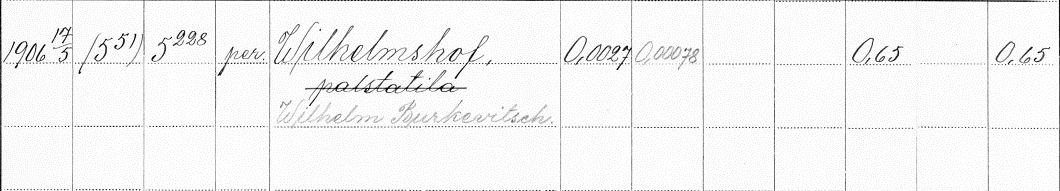 1906 17/5 (5 51) 5 228 per. Wilhelmshof, 0,0027 0,00078 0,65 0,65
palstatila
Wilhelm Burkevitsch.